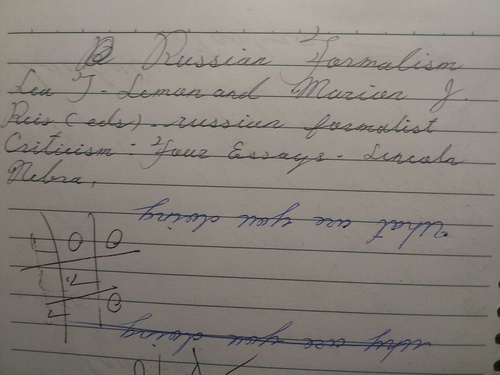 Russian Formalism
Lee T. Lemon and Marion J.
Reis (eds) - russian formalist
Criticism : Four Essays - Lincoln
Nebra,
What are you doing
0 0
0
why are you doing